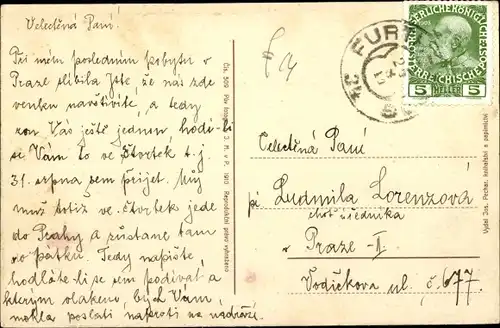 Velectěná Paní!
Při mém posledním pobytu v
Praze slíbila jste, že nás zde
venku navštívíte, a tedy
zvu Vás ještě jednou, hodí-li
se Vám to ve čtvrtek t. j.
31. srpna sem přijet. Můj
muž totiž ve čtvrtek jede
do Prahy a zůstane tam
do pátku. Tedy napište,
hodláte-li se sem podívat a
kterým vlakem, bych Vám
mohla poslati naproti na nádraží.
Čís. 509 J. R. v P. 1910 Reprodukční právo vyhrazeno
Vydal Jos. Pechar, knihařství a papírnictví
FURTH
KAISERLICHE KÖNIGLICHE
ÖSTERREICHISCHE POST
5 HELLER 5
Velectěná Paní
pí Ludmila Lorenzová
choť úředníka
v Praze-II.
Vodičkova ul. č. 677.